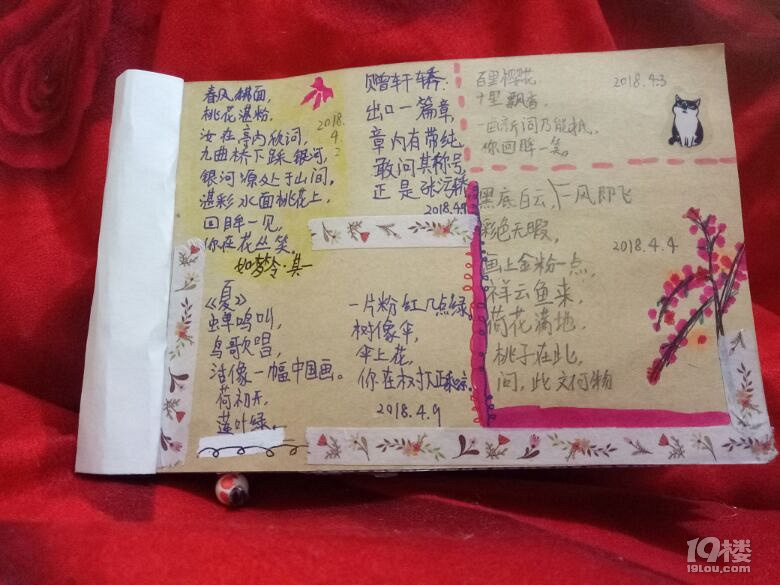 春风拂面，
桃花湛粉。
汝在亭内欣词，
九曲桥下踩银河，
银河源处于山间，
湛彩水面桃花上，
回眸一见，
你在花丛笑。
如梦令·其一
2018.
4.
2
《夏》
蝉鸣叫，
鸟歌唱，
活像一幅中国画。
荷初开，
莲叶绿。
赠轩轿：
出口一篇章，
章内有带纯，
敢问其称号，
正是
2018.4.9
一片粉红几点绿，
树像伞，
伞上花，
你在树下正
2018.4.9
百里樱花
2018.4.3
十里飘香，
一曲新词乃能
你回眸一笑。
黑底白云，下一风即飞
彩色无暇，
2018.4.4
画上金粉一点，
祥云鱼来，
荷花满地，
桃子在此，
问，此文何物
19楼
19lou.com